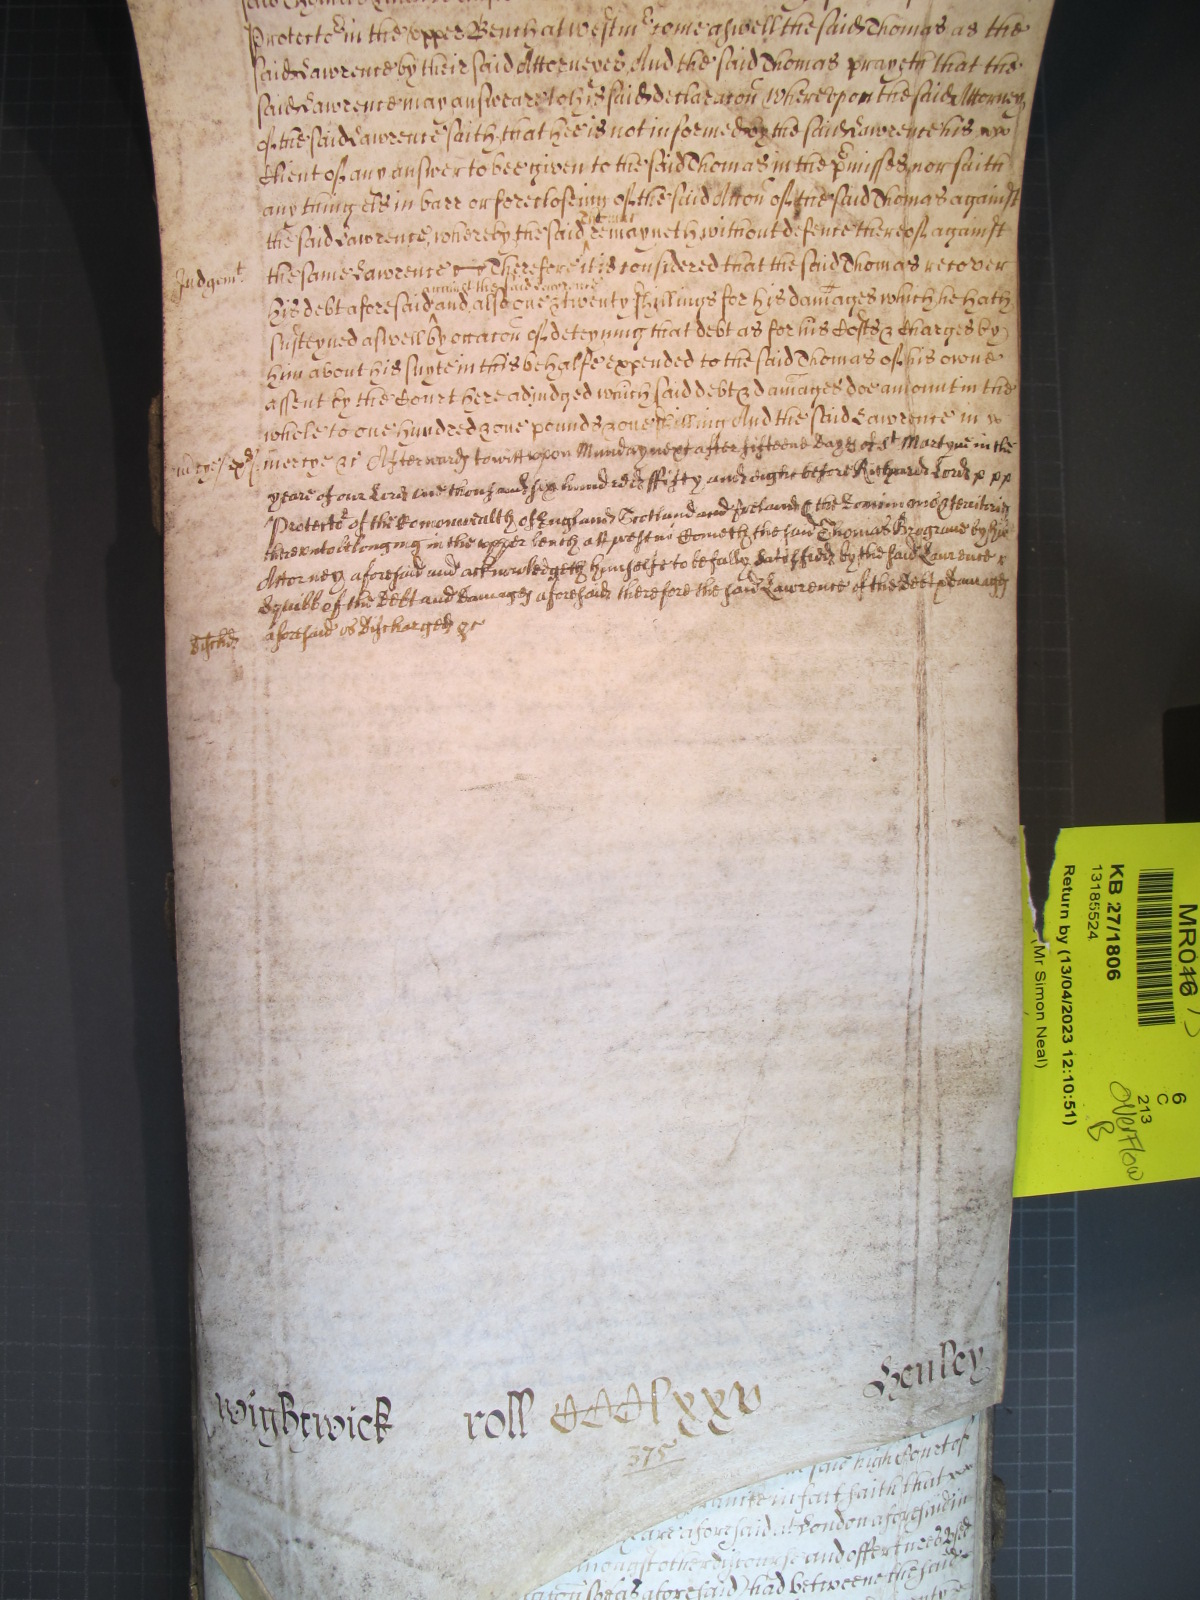 Protector in the upper Bench at Westmr come aswell the said Thomas as the
said Lawrence by their said Attorneyes And the said Thomas prayeth that the
said Lawrence may answeare to his said declaracon Whereupon the said Attorney
of the said Lawrence saith that hee is not informed by the said Lawrence his
Client of any answer to bee given to the said Thomas in the pmisses nor saith
any thing els in barr or forecloseing of the said Accon of the said Thomas against
the said Lawrence, whereby the said Thomas remayneth without defence thereof against
Judgemt
the same Lawrence Therefore it is considered that the said Thomas recover
against the said Lawrence
his debt aforesaid and also one & twenty shillings for his damages which he hath
susteyned aswell by occacon of deteyning that debt as for his Costs & Charges by
him about his suyte in this behalfe expended to the said Thomas of his owne
assent by the Court here adjudged which said debt & damages doe amount in the
whole to one hundred & one pounds & one shilling And the said Lawrence in
mercye &c Afterwards to witt upon Munday next after fifteene dayes of St Martyne in the
yeare of our Lord one thousand six hundred fifty and eight before Richard Lord
Protector of the Comonwealth of England Scotland and Ireland & the Dominions & territories
thereunto belonging in the upper bench att Westmr Cometh the said Thomas by his
Attorney aforesaid and acknowledgeth himselfe to be fully satisfied by the said Lawrence
of the Debt and damages aforesaid therefore the said Lawrence of the Debt & damages
aforesaid is discharged &c
Wightwick roll CCClxxv Henley
375
said high Court of
in fact saith that
yeare aforesaid at London aforesaid in
amongst other discourse and
aforesaid) had betweene the said
KB 27/1806
13185524
Return by (13/04/2023 12:10:51)
(Mr Simon Neal)
6
C
213
Overflow
B